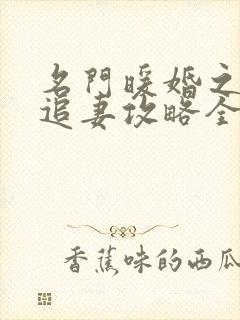 名門暖婚之
追妻攻略全
香蕉味的西瓜